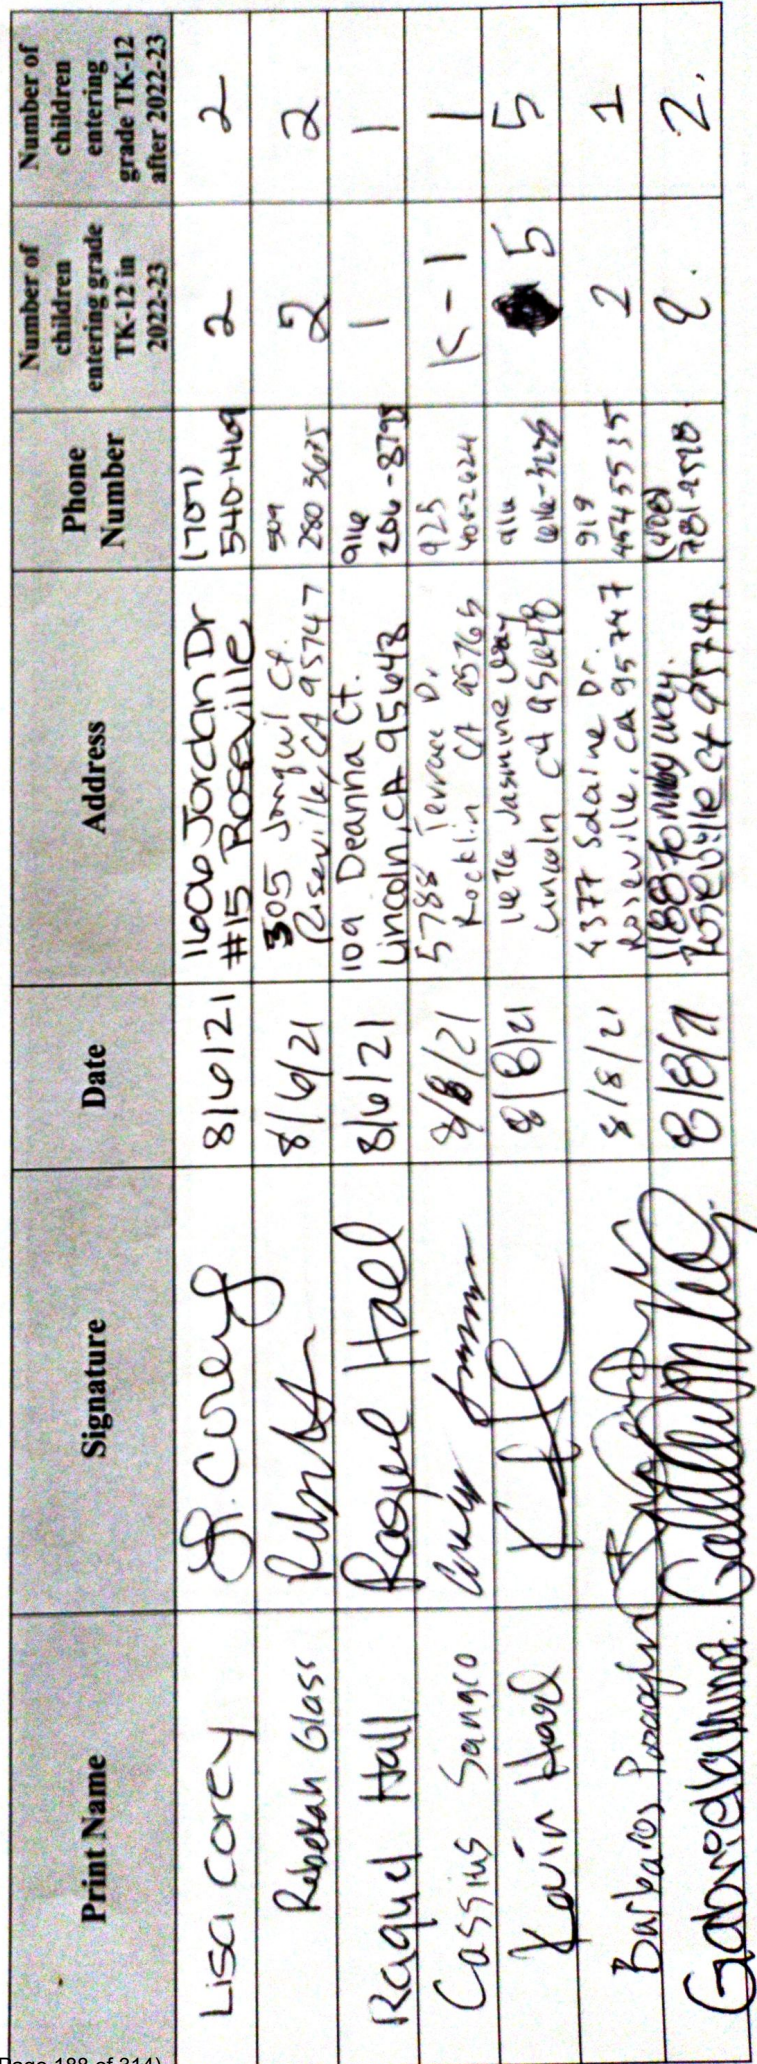 Print Name
Signature
Date
Address
Phone
Number
Number of
children
entering grade
TK-12 in
2022-23
Number of
children
entering
grade TK-12
after 2022-23
Lisa Corey
L. Corey
8/6/21
1606 Jordan Dr
#15 Roseville
(707)
540-1469
2
2
Rebekah Glass
8/6/21
305 Jonquil Ct.
Roseville, CA 95747
509
280 3625
2
2
Raquel Hall
Raquel Hall
8/6/21
109 Deanna Ct.
Lincoln, CA 95648
916
206-8798
1
1
Cassius Sangco
8/8/21
5788 Terrace Dr
Rocklin CA 95765
925
K-1
1
Kevin Hard
8/8/21
Jasmine Way
Lincoln CA 95648
916
5
5
Barbaros
8/8/21
4377 Solaine Dr.
Roseville, CA 95747
919
4545535
2
1
8/8/21
way.
Roseville CA 95747.
(408)
781-2528.
2.
2.
Page 188 of 314)